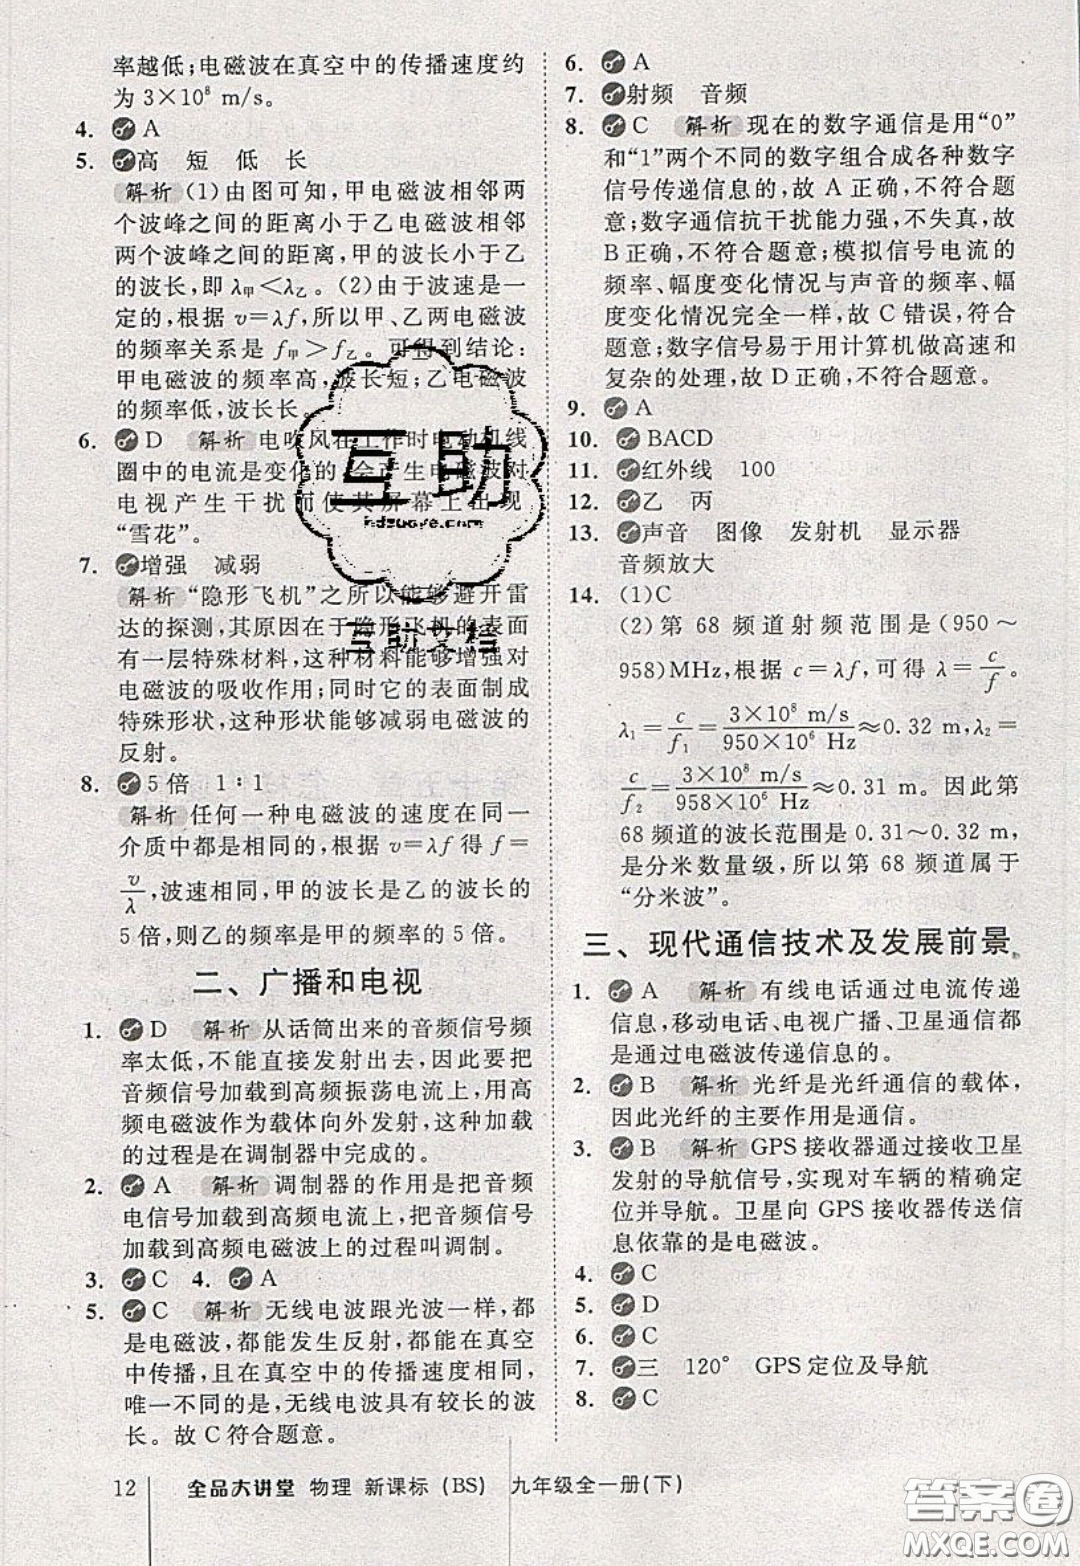 率越低;电磁波在真空中的传播速度约
为 3×10⁸ m/s。
4. A
5. 高 短 低 长
解析 (1)由图可知,甲电磁波相邻两
个波峰之间的距离小于乙电磁波相邻
两个波峰之间的距离,甲的波长小于乙
的波长,即 λ甲<λ乙。(2)由于波速是一
定的,根据 v=λf,所以甲、乙两电磁波
的频率关系是 f甲>f乙。可得到结论:
甲电磁波的频率高,波长短;乙电磁波
的频率低,波长长。
6. D 解析 电吹风在工作时电动机线
圈中的电流是变化的,会产生电磁波对
电视产生干扰而使其屏幕上出现
“雪花”。
7. 增强 减弱
解析 “隐形飞机”之所以能够避开雷
达的探测,其原因在于隐形飞机的表面
有一层特殊材料,这种材料能够增强对
电磁波的吸收作用;同时它的表面制成
特殊形状,这种形状能够减弱电磁波的
反射。
8. 5倍 1∶1
解析 任何一种电磁波的速度在同一
介质中都是相同的。根据 v=λf 得 f=
v/λ,波速相同,甲的波长是乙的波长的
5倍,则乙的频率是甲的频率的5倍。
二、广播和电视
1. D 解析 从话筒出来的音频信号频
率太低,不能直接发射出去,因此要把
音频信号加载到高频振荡电流上,用高
频电磁波作为载体向外发射,这种加载
的过程是在调制器中完成的。
2. A 解析 调制器的作用是把音频
电信号加载到高频电流上,把音频信号
加载到高频电磁波上的过程叫调制。
3. C 4. A
5. C 解析 无线电波跟光波一样,都
是电磁波,都能发生反射,都能在真空
中传播,且在真空中的传播速度相同,
唯一不同的是,无线电波有较长的波
长。故 C 符合题意。
6. A
7. 射频 音频
8. C 解析 现在的数字通信是用“0”
和“1”两个不同的数字组合成各种数字
信号传递信息的,故 A 正确,不符合题
意;数字通信抗干扰能力强,不失真,故
B 正确,不符合题意;模拟信号电流的
频率、幅度变化情况与声音的频率、幅
度变化情况完全一样,故 C 错误,符合
题意;数字信号易于用计算机做高速和
复杂的处理,故 D 正确,不符合题意。
9. A
10. BACD
11. 红外线 100
12. 乙 丙
13. 声音 图像 发射机 显示器
音频放大
14. (1)C
(2)第 68 频道射频范围是(950~
958)MHz,根据 c=λf,可得 λ=c/f。
λ₁=c/f₁=3×10⁸ m/s/950×10⁶ Hz≈0.32 m,λ₂=
c/f₂=3×10⁸ m/s/958×10⁶ Hz≈0.31 m。所以第
68 频道的波长范围是 0.31~0.32 m,
是分米数量级,所以第 68 频道属于
“分米波”。
三、现代通信技术及发展前景
1. A 解析 有线电话通过电流传递
信息,移动电话、电视广播、卫星通信都
是通过电磁波传递信息的。
2. B 解析 光纤是光纤通信的载体,
因此光纤的主要作用是通信。
3. B 解析 GPS 接收器通过接收卫星
发射的导航信号,实现对车辆的精确定
位并导航。卫星向 GPS 接收器传送信
息依靠的是电磁波。
4. C
5. D
6. C
7. 三 120° GPS 定位及导航
8. C
12 全品大讲堂 物理 新课标(BS) 九年级全一册(下)
互助
hdzuoye.com
互助文档
答案圈
MXQE.COM